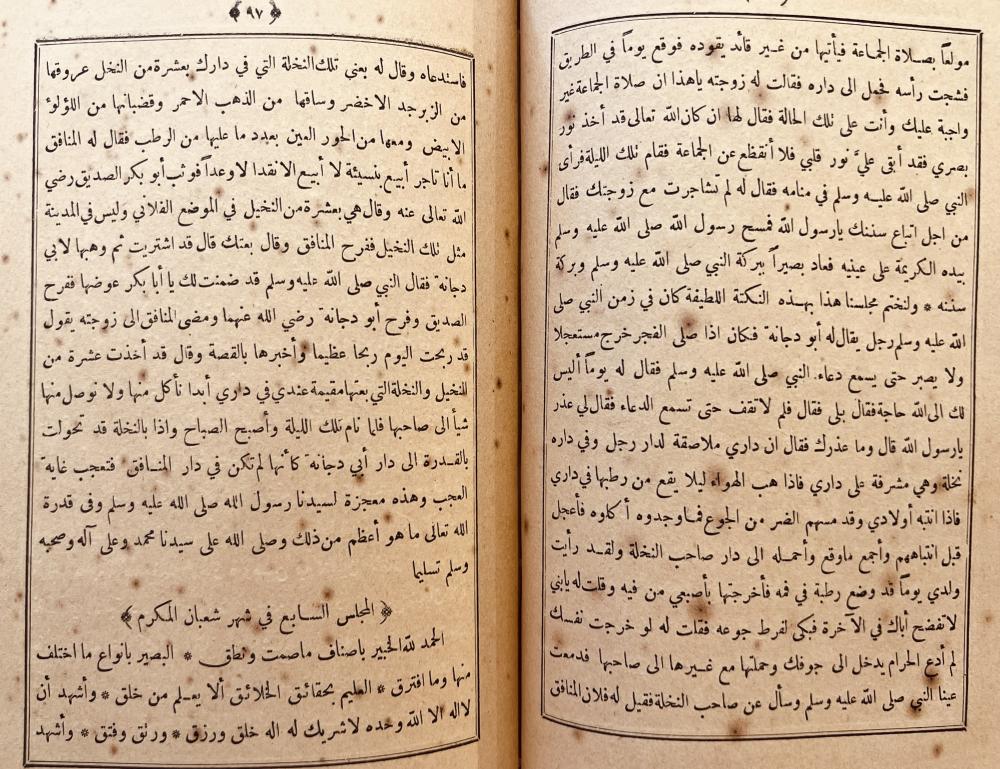 مولعاً بصلاة الجماعة فيأتيها من غير قائد يقوده فوقع يوماً في الطريق
فشجت رأسه فحمل الى داره فقالت له زوجته ياهذا ان صلاة الجماعة غير
واجبة عليك وأنت على تلك الحالة فقال لها ان كان الله تعالى قد أخذ نور
بصري فقد أبقى عليَّ نور قلبي فلا أنقطع عن الجماعة فقام تلك الليلة فرأى
النبي صلى الله عليه وسلم في منامه فقال له لم تشاجرت مع زوجتك فقال
من اجل اتباع سننك يارسول الله فمسح رسول الله صلى الله عليه وسلم
بيده الكريمة على عينيه فعاد بصيراً ببركة النبي صلى الله عليه وسلم وبركة
سننه * ولنختم مجلسنا هذا بهذه النكتة اللطيفة كان في زمن النبي صلى
الله عليه وسلم رجل يقال له أبو دجانة فكان اذا صلى الفجر خرج مستعجلا
ولا يصبر حتى يسمع دعاء النبي صلى الله عليه وسلم فقال له يوماً أليس
لك الى الله حاجة فقال بلى فقال فلم لا تقف حتى تسمع الدعاء فقال لي عذر
يارسول الله قال وما عذرك فقال ان داري ملاصقة لدار رجل وفي داره
نخلة وهي مشرفة على داري فاذا هب الهواء ليلا يقع من رطبها في داري
فاذا انتبه أولادي وقد مسهم الضر من الجوع فما وجدوه أكلوه فأعجل
قبل انتباههم وأجمع ماوقع وأحمله الى دار صاحب النخلة ولقد رأيت
ولدي يوماً قد وضع رطبة في فمه فأخرجتها بأصبعي من فيه وقلت له يابني
لا تفضح أباك في الآخرة فبكى لفرط جوعه فقلت له لو خرجت نفسك
لم أدع الحرام يدخل الى جوفك وحملتها مع غيرها الى صاحبها فدمعت
عينا النبي صلى الله عليه وسلم وسأل عن صاحب النخلة فقيل له فلان المنافق
﴿ ٩٧ ﴾
فاستدعاه وقال له بعني تلك النخلة التي في دارك بعشرة من النخل عروقها
من الزبرجد الاخضر وساقها من الذهب الاحمر وقضبانها من اللؤلؤ
الابيض ومعها من الحور العين بعدد ما عليها من الرطب فقال له المنافق
ما أنا تاجر أبيع بنسيئة لا أبيع الا نقدا لا وعداً فوثب أبو بكر الصديق رضي
الله تعالى عنه وقال هي بعشرة من النخيل في الموضع الفلاني وليس في المدينة
مثل تلك النخيل ففرح المنافق وقال بعتك قال قد اشتريت ثم وهبها لابي
دجانة فقال النبي صلى الله عليه وسلم قد ضمنت لك يا أبا بكر عوضها ففرح
الصديق وفرح أبو دجانة رضي الله عنهما ومضى المنافق الى زوجته يقول
قد ربحت اليوم ربحا عظيما وأخبرها بالقصة وقال قد أخذت عشرة من
النخيل والنخلة التي بعتها مقيمة عندي في داري أبدا نأكل منها ولا نوصل منها
شيأ الى صاحبها فلما نام تلك الليلة وأصبح الصباح واذا بالنخلة قد تحولت
بالقدرة الى دار أبي دجانة كأنها لم تكن في دار المنافق فتعجب غاية
العجب وهذه معجزة لسيدنا رسول الله صلى الله عليه وسلم وفى قدرة
الله تعالى ما هو أعظم من ذلك وصلى الله على سيدنا محمد وعلى آله وصحبه
وسلم تسليما
﴿ المجلس السابع في شهر شعبان المكرم ﴾
الحمد لله الخبير باصناف ماصمت ونطق * البصير بأنواع ما اختلف
منها وما افترق * العليم بحقائق الخلائق ألا يعلم من خلق * وأشهد أن
لا اله الا الله وحده لا شريك له اله خلق ورزق * ورتق وفتق * وأشهد